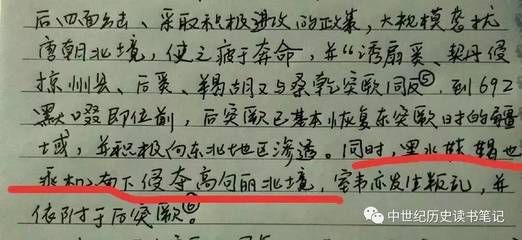 后,四面出击、采取积极进攻的政策,大规模袭扰
唐朝北境,使之疲于奔命,并"诱扇奚、契丹侵
掠州县、后奚、羯胡又与桑乾突厥同反⑤.到692
默啜即位前,后突厥已基本恢复东突厥旧时的疆
域,并积极向东北地区渗透。同时,黑水靺鞨也
乘机南下侵夺高句丽北境,室韦亦发生叛乱,并
依附于后突厥⑥
中世纪历史读书笔记